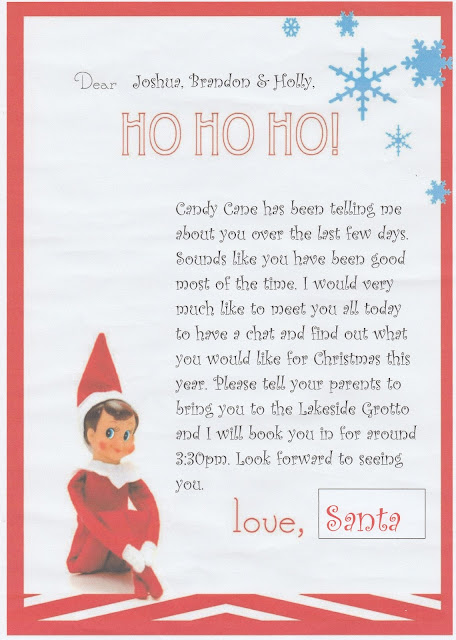 Dear Joshua, Brandon & Holly,
HO HO HO!
Candy Cane has been telling me
about you over the last few days.
Sounds like you have been good
most of the time. I would very
much like to meet you all today
to have a chat and find out what
you would like for Christmas this
year. Please tell your parents to
bring you to the Lakeside Grotto
and I will book you in for around
3:30pm. Look forward to seeing
you.
love, Santa